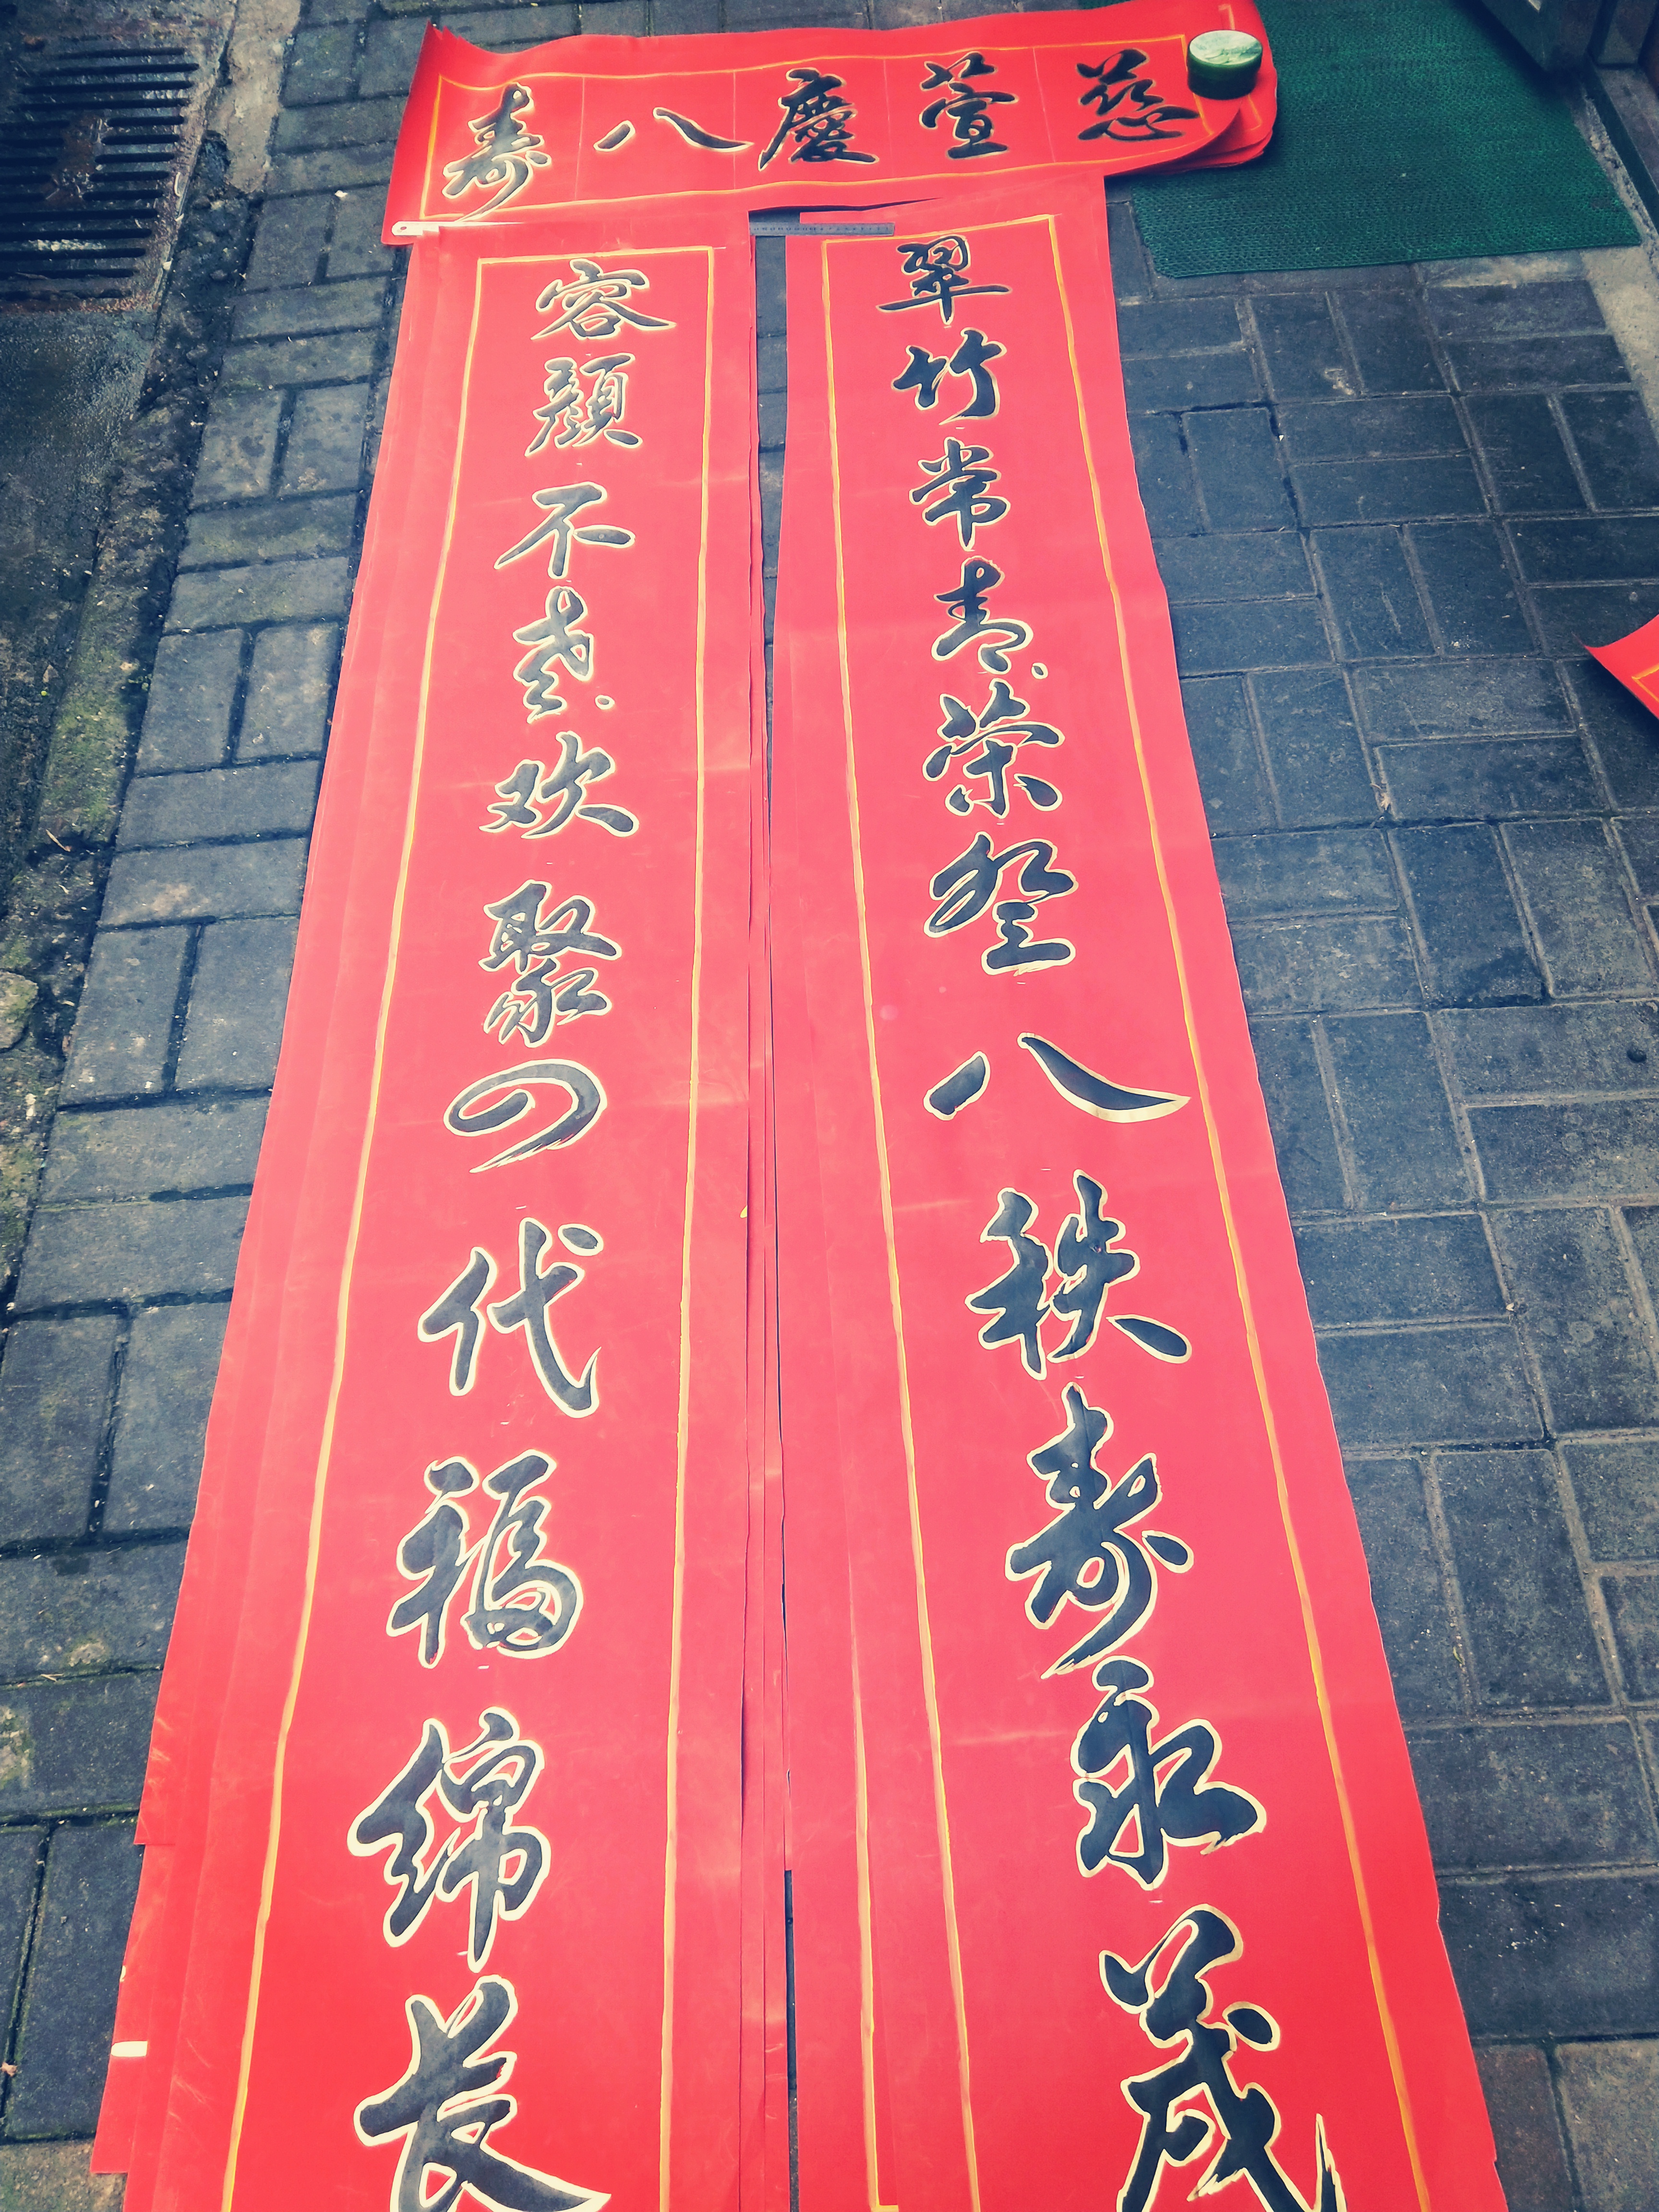 慈萱慶八寿
翠竹常青荣登八秩寿永茂
容顔不衰欢聚四代福绵长